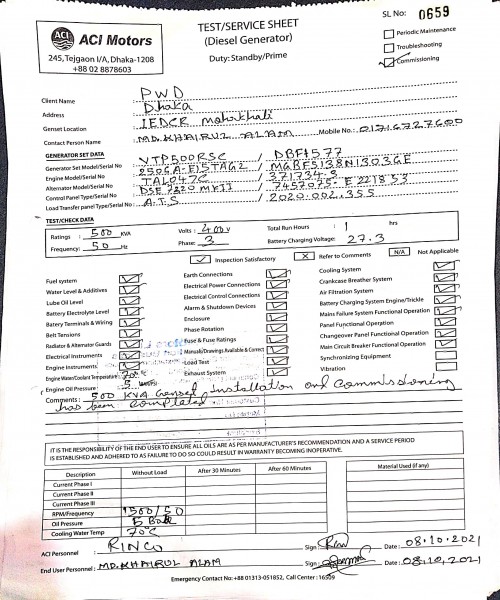 ACI
ACI Motors
245, Tejgaon I/A, Dhaka-1208
+88 02 8878603
TEST/SERVICE SHEET
(Diesel Generator)
Duty: Standby/Prime
SL No: 0659
Periodic Maintenance
Troubleshooting
Commissioning
Client Name PWD
Address Dhaka
Genset Location IEDCR Mohakhali
Contact Person Name MD. KHAIRUL ALAM Mobile No.: 01716727600
GENERATOR SET DATA
Generator Set Model/Serial No VTP500RSC / DBF1577
Engine Model/Serial No 2506A-E15TAG2 / MGBF5138N13036E
Alternator Model/Serial No TAL047C / 371734-3
Control Panel Type/Serial No DSE 7320 MKII / 7457075-E221853
Load Transfer panel Type/Serial No A.T.S / 2020.002.355
TEST/CHECK DATA
Ratings: 500 KVA Volts: 400v Total Run Hours: 1 hrs
Frequency: 50 Hz Phase: 3 Battery Charging Voltage: 27.3
Inspection Satisfactory X Refer to Comments N/A Not Applicable
Fuel system
Water Level & Additives
Lube Oil Level
Battery Electrolyte Level
Battery Terminals & Wiring
Belt Tensions
Radiator & Alternator Guards
Electrical Instruments
Engine Instruments
Engine Water/Coolant Temperature: 70°c
Engine Oil Pressure: 5
Earth Connections
Electrical Power Connections
Electrical Control Connections
Alarm & Shutdown Devices
Enclosure
Phase Rotation
Fuse & Fuse Ratings
Manuals/Drawings Available & Correct
Load Test
Exhaust System
Cooling System
Crankcase Breather System
Air Filtration System
Battery Charging System Engine/Trickle
Mains Failure System Functional Operation
Panel Functional Operation
Changeover Panel Functional Operation
Main Circuit Breaker Functional Operation
Synchronizing Equipment
Vibration
Comments: 500 KVA Genset Installation and Commissioning
has been completed.
IT IS THE RESPONSIBILITY OF THE END USER TO ENSURE ALL OILS ARE AS PER MANUFACTURER'S RECOMMENDATION AND A SERVICE PERIOD
IS ESTABLISHED AND ADHERED TO AS FAILURE TO DO SO COULD RESULT IN WARRANTY BECOMING INOPERATIVE.
Description Without Load After 30 Minutes After 60 Minutes Material Used (if any)
Current Phase I
Current Phase II
Current Phase III
RPM/Frequency 1500/50
Oil Pressure 5 Bar
Cooling Water Temp 70°c
ACI Personnel RINCO Sign: Date: 08.10.2021
End User Personnel: MD. KHAIRUL ALAM Sign: Date: 08.10.2021
Emergency Contact No: +88 01313-051852, Call Center: 16509